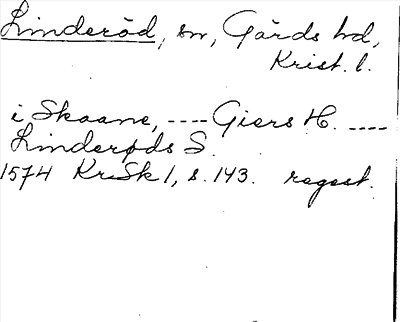 Linderöd, sn, Gärds hd,
Krist. l.
i Skaane, ---- Giers H. ----
Linderøds S.
1574 KrSk 1, s. 143. regest.